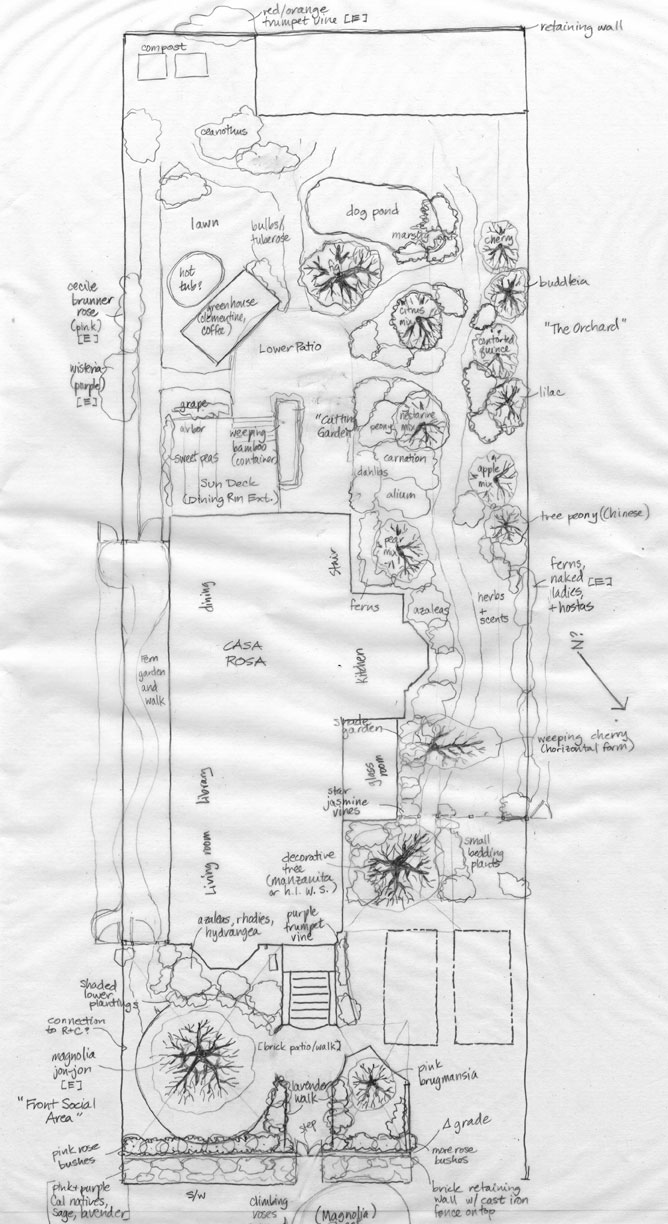 red/orange
trumpet vine [E]
retaining wall
compost
ceanothus
lawn
bulbs/
tuberose
dog pond
marsh
cherry
hot
tub?
greenhouse
(clementine,
coffee)
citrus
mix
buddleia
cecile
brunner
rose
(pink)
[E]
"The Orchard"
contorted
quince
Lower Patio
wisteria
(purple)
[E]
lilac
grape
arbor
sweet peas
weeping
bamboo
(container)
"Cutting
Garden"
peony
nectarine
mix
carnation
dahlias
alium
apple
mix
Sun Deck
(Dining Rm Ext.)
tree peony (Chinese)
pear
mix
stair
ferns
azaleas
herbs
+
scents
ferns,
naked [E]
ladies,
+ hostas
dining
CASA
ROSA
kitchen
fern
garden
and
walk
N?
shade
garden
weeping cherry
(horizontal form)
glass
room
library
star
jasmine
vines
Living room
decorative
tree
(manzanita
or h.l. W.S.)
small
bedding
plants
azaleas, rhodies,
hydrangea
purple
trumpet
vine
shaded
lower
plantings
connection
to R+C?
[brick patio/walk]
magnolia
jon-jon
[E]
pink
brugmansia
"Front Social
Area"
lavender
walk
step
Δ grade
pink rose
bushes
more rose
bushes
pink + purple
Cal natives,
Sage, lavender
S/W
climbing
roses
(Magnolia)
brick retaining
wall w/ cast iron
fence on top